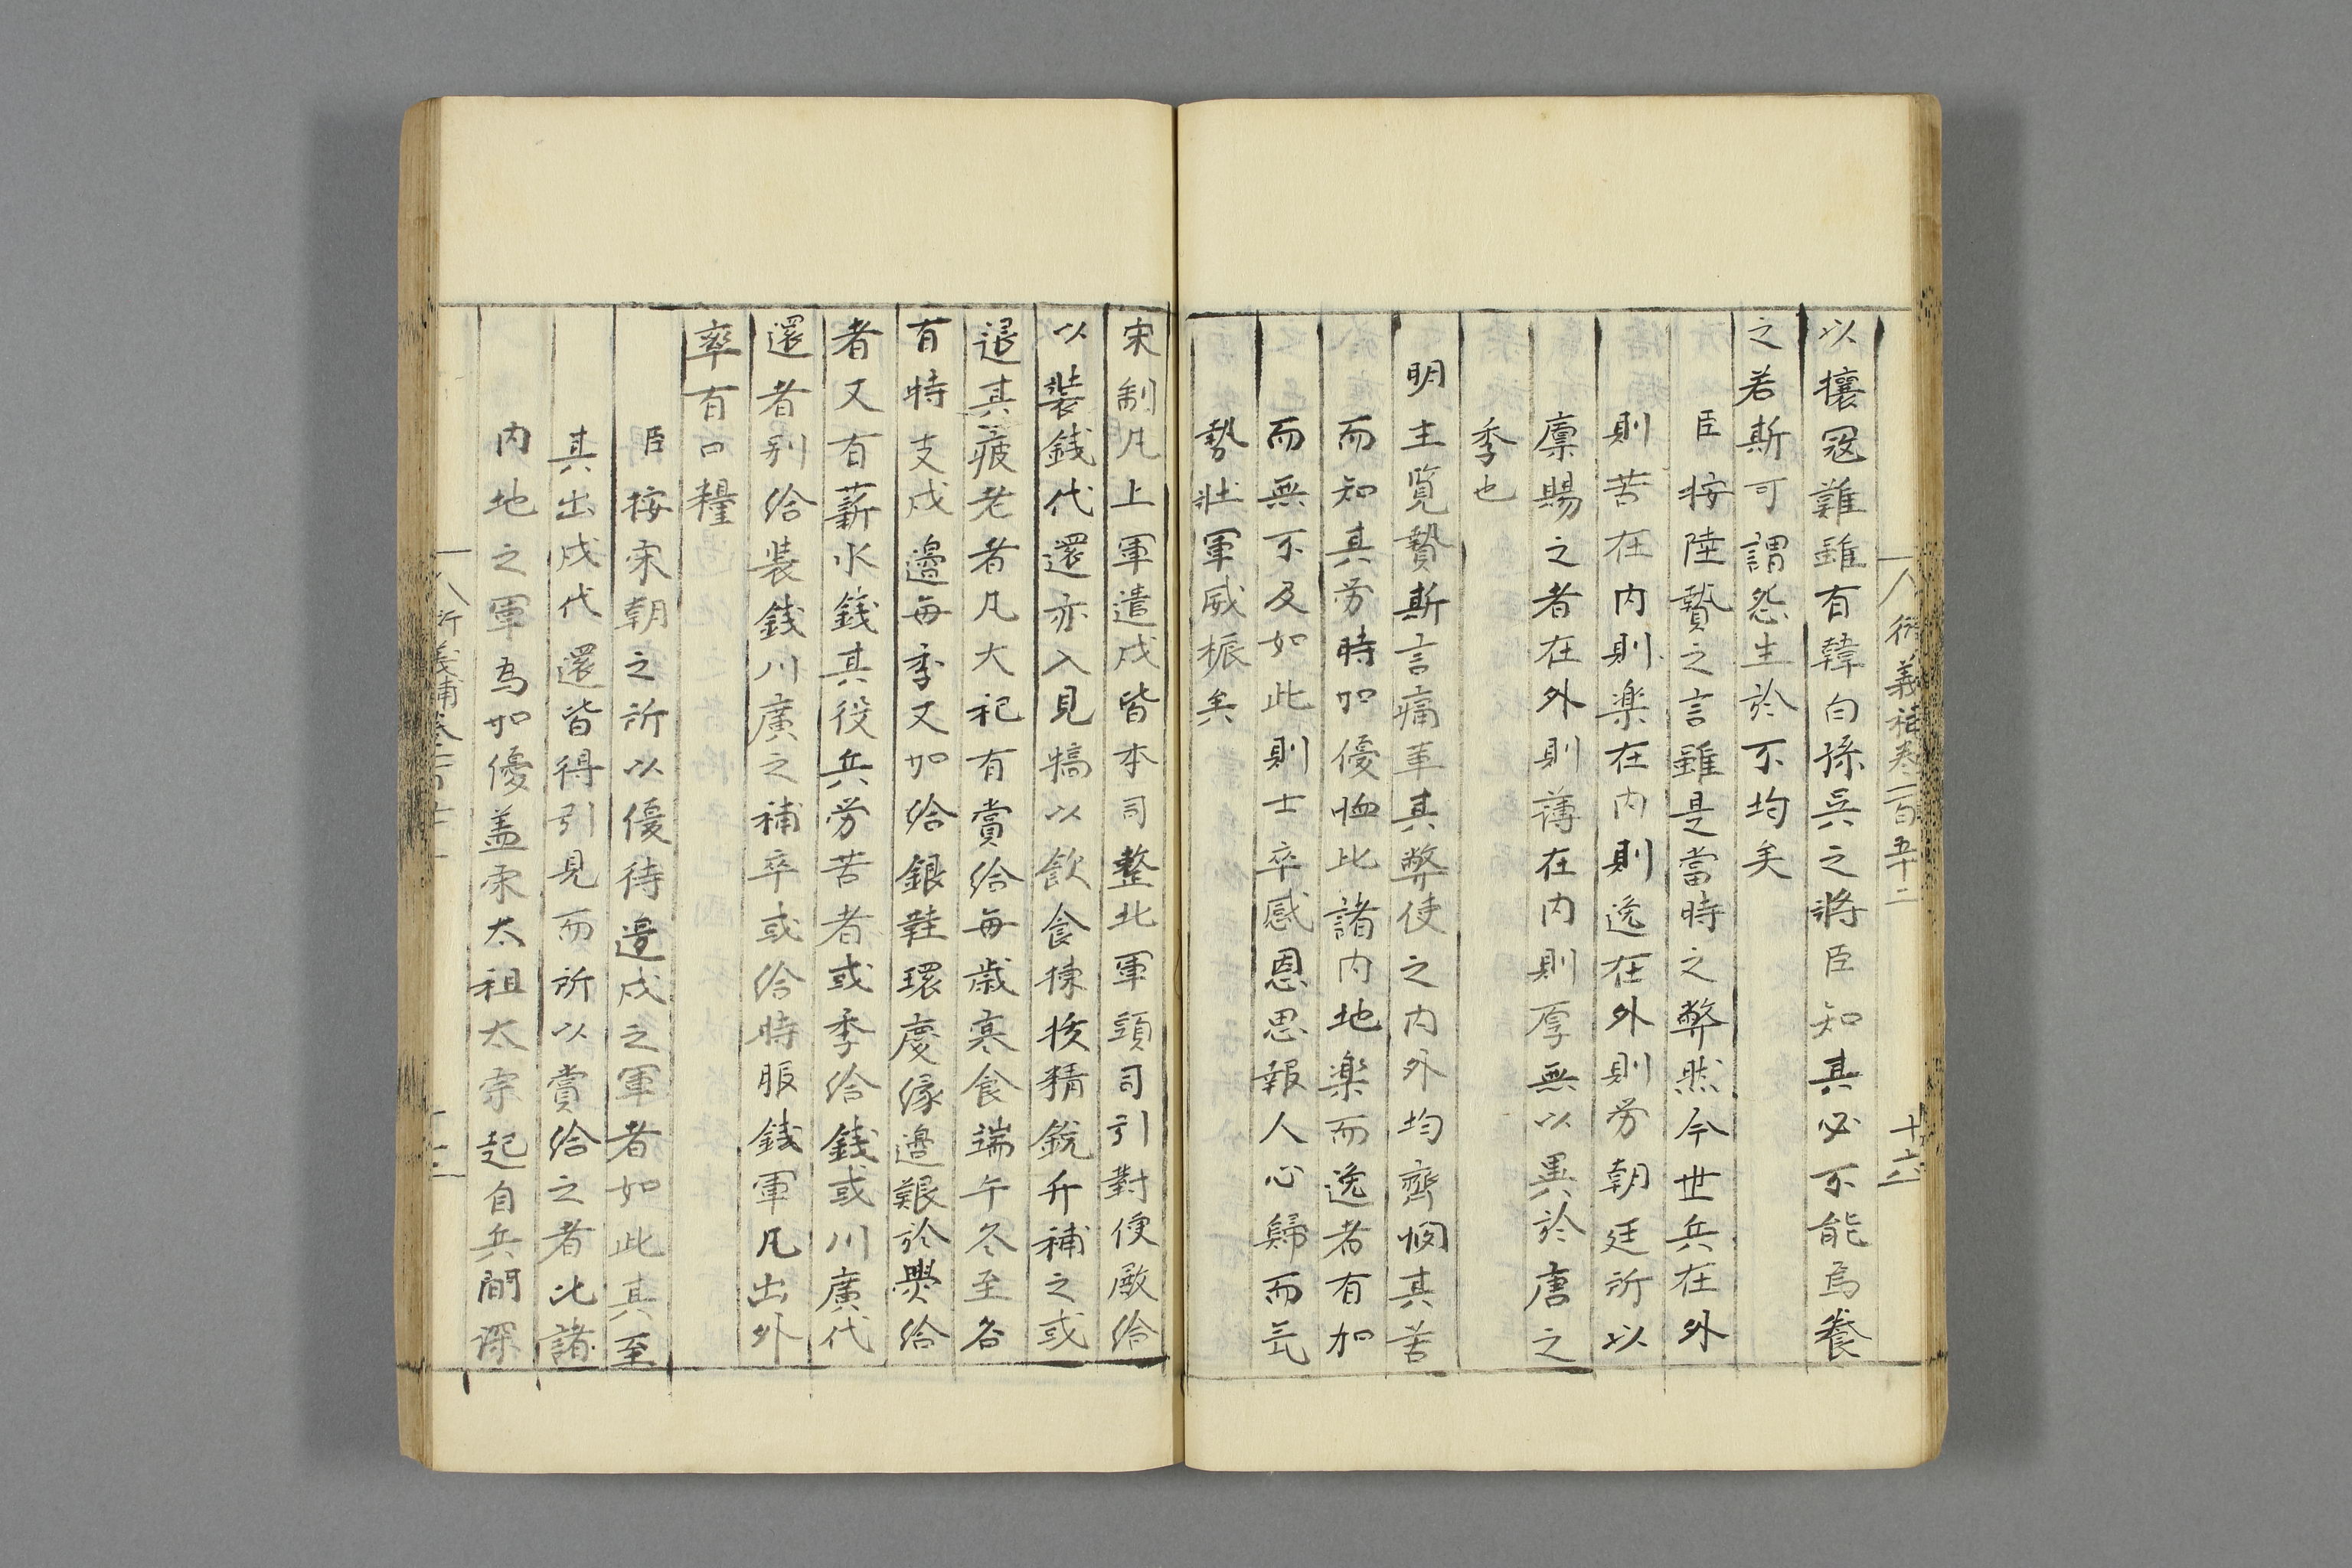 衍義補卷一百五十二
十六
以攘冦難雖有韓白孫吳之將臣知其必不能焉養
之若斯可謂怨生於不均矣
臣按陸贄之言雖是當時之弊然今世兵在外
則苦在内則楽在内則逸在外則労朝廷所以
廩賜之者在外則薄在内則厚無以異於唐之
季也
明主覧贄斯言痛革其弊使之内外均齊憫其苦
而知其労時加優恤比諸内地楽而逸者有加
而無不及如此則士卒感恩思報人心歸而氣
勢壯軍威振矣
宋制凡上軍遣戍皆本司整比軍頭司引對便殿給
以装錢代還亦入見犒以飲食揀拔精銳升補之或
退其疲老者凡大祀有賞給毎歳寒食端午冬至各
有特支戍邉毎季又加給銀鞋環慶縁邉艱於爨給
者又有薪水錢其役兵労苦者或季給錢或川廣代
還者别給装錢川廣之補卒或給時服錢軍凡出外
率有口糧
臣按宋朝之所以優待邉戍之軍者如此其至
其出戍代還皆得引見而所以賞給之者比諸
内地之軍為加優盖宋太祖太宗起自兵間深